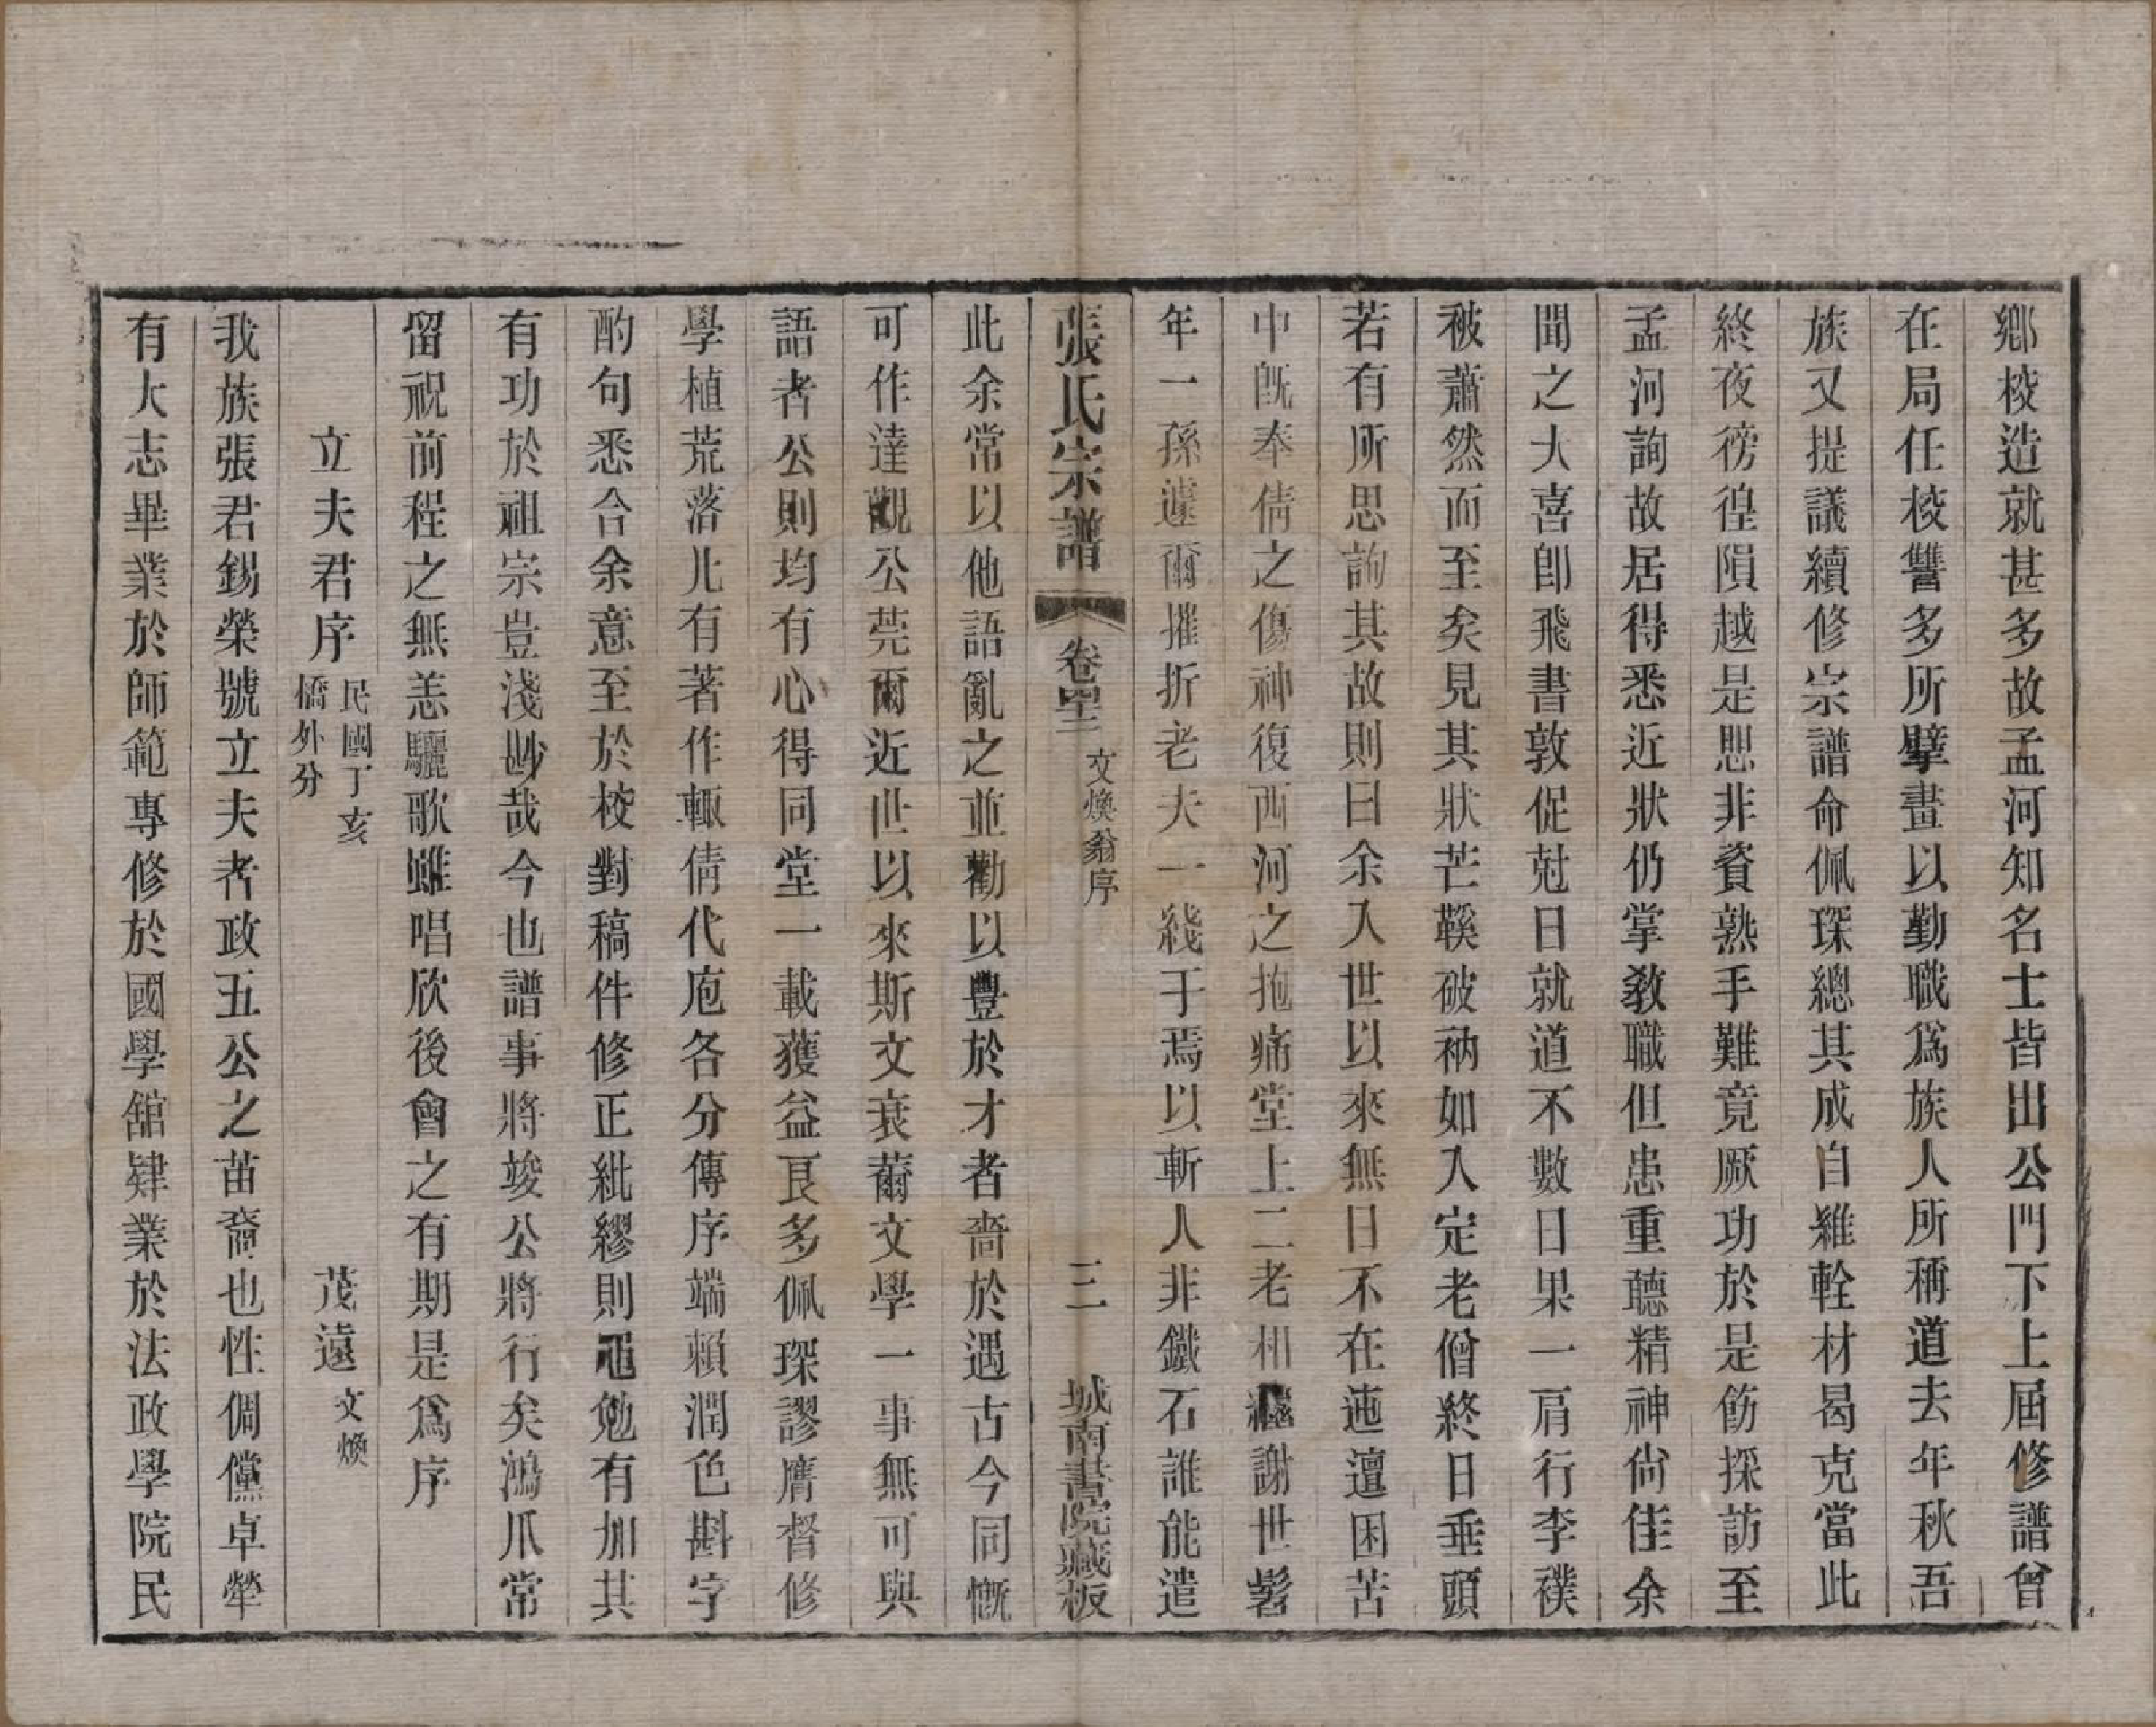 鄉校造就甚多故孟河知名士皆出公門下上屆修譜曾
在局任校讐多所擘畫以勤職爲族人所稱道去年秋吾
族又提議續修宗譜命佩琛總其成自維輇材曷克當此
終夜徬徨隕越是思非資熟手難竟厥功於是飭採訪至
孟河詢故居得悉近狀仍掌敎職但患重聽精神尙佳余
聞之大喜卽飛書敦促尅日就道不數日果一肩行李襆
被蕭然而至矣見其狀芒鞵破衲如入定老僧終日垂頭
若有所思詢其故則曰余入世以來無日不在迍邅困苦
中旣奉倩之傷神復西河之抱痛堂上二老相繼謝世髫
年一孫遽爾摧折老夫一綫于焉以斬人非鐵石誰能遣
張氏宗譜 卷 文煥翁序 三 城南書院藏板
此余常以他語亂之並勸以豐於才者嗇於遇古今同慨
可作達觀公莞爾近世以來斯文衰薾文學一事無可與
語者公則均有心得同堂一載獲益良多佩琛謬膺督修
學植荒落凡有著作輒倩代庖各分傳序端賴潤色斟字
酌句悉合余意至於校對稿件修正紕繆則黽勉有加其
有功於祖宗豈淺尠哉今也譜事將竣公將行矣鴻爪常
留祝前程之無恙驪歌雖唱欣後會之有期是爲序
立夫君序 民國丁亥 橋外分 茂遠 文煥
我族張君錫榮號立夫者政五公之苗裔也性倜儻卓犖
有大志畢業於師範專修於國學舘肄業於法政學院民